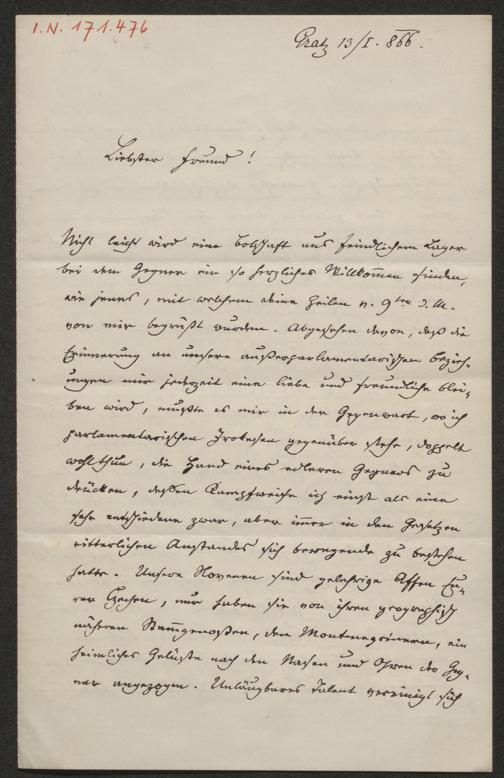 I.N. 171.476
Gratz 13/I. 866.
Liebster Freund!
Nicht leicht wird eine Botschaft aus feindlichem Lager
bei dem Gegner ein so herzliches Willkom̅en finden,
wie jenes, mit welchem deine Zeilen v. 9ten d. M.
von mir begrüßt wurden. Abgesehen davon, daß die
Erinnerung an unsere außerparlamentarischen Bezieh-
ungen mir jederzeit eine liebe und freundliche blei-
ben wird, mußte es mir in der Gegenwart, wo ich
parlamentarischen Irokesen gegenüber stehe, doppelt
wohlthun, die Hand eines edleren Gegners zu
drücken, dessen Kampfweise ich einst als eine
sehr entschiedene zwar, aber im̅er in den Gesetzen
ritterlichen Anstandes sich bewegende zu bestehen
hatte. Unsere Slovenen sind gelehrige Affen Eu-
rer Czechen, nur haben sie von ihren geographisch
näheren Stam̅genoßen, den Montenegrinern, ein
heimliches Gelüste nach den Nasen und Ohren der Geg-
ner angezogen. Unläugbares Talent vereinigt sich